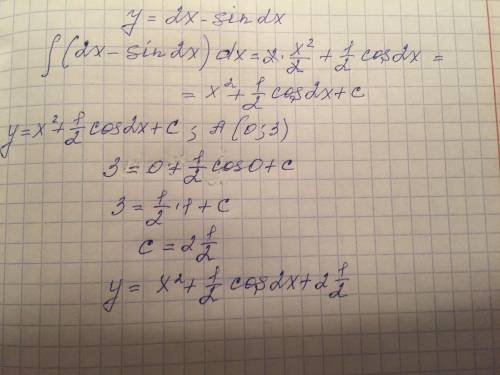 y = 2x - sin dx
∫(2x - sin 2x) dx = 2·x²/2 + 1/2 cos2x =
= x² + 1/2 cos2x + c
y = x² + 1/2 cos2x + c ; A(0;3)
3 = 0 + 1/2 cos0 + c
3 = 1/2 · 1 + c
c = 2 1/2
y = x² + 1/2 cos2x + 2 1/2